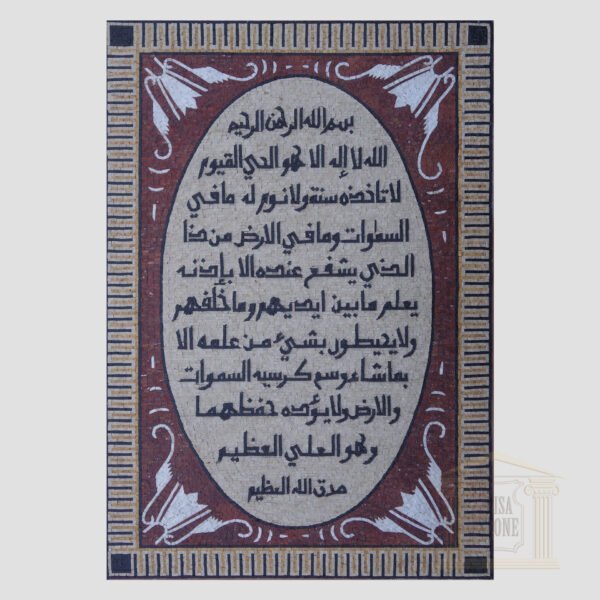 بسم الله الرحمن الرحيم
الله لا إله الا هو الحي القيوم
لا تاخذه سنة ولا نوم له ما في
السموات وما في الارض من ذا
الذي يشفع عنده الا بإذنه
يعلم ما بين ايديهم وما خلفهم
ولا يحيطون بشئ من علمه الا
بما شاء وسع كرسيه السموات
والارض ولا يؤده حفظهما
وهو العلي العظيم
صدق الله العظيم